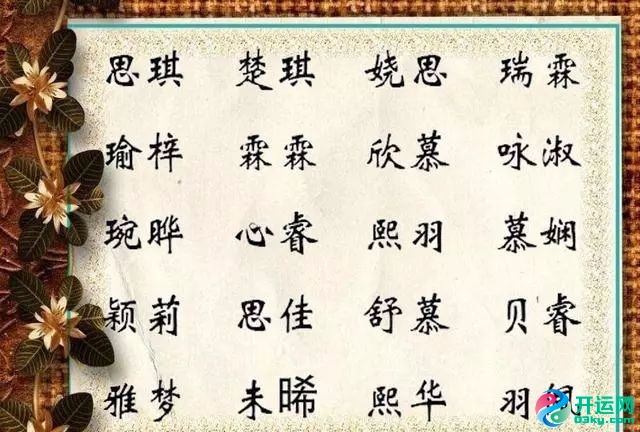 思琪 楚琪 娆思 瑞霖
瑜梓 霖霖 欣慕 咏淑
琬晔 心睿 熙羽 慕娴
颖莉 思佳 舒慕 贝睿
雅梦 未晞 熙华 羽
开运网